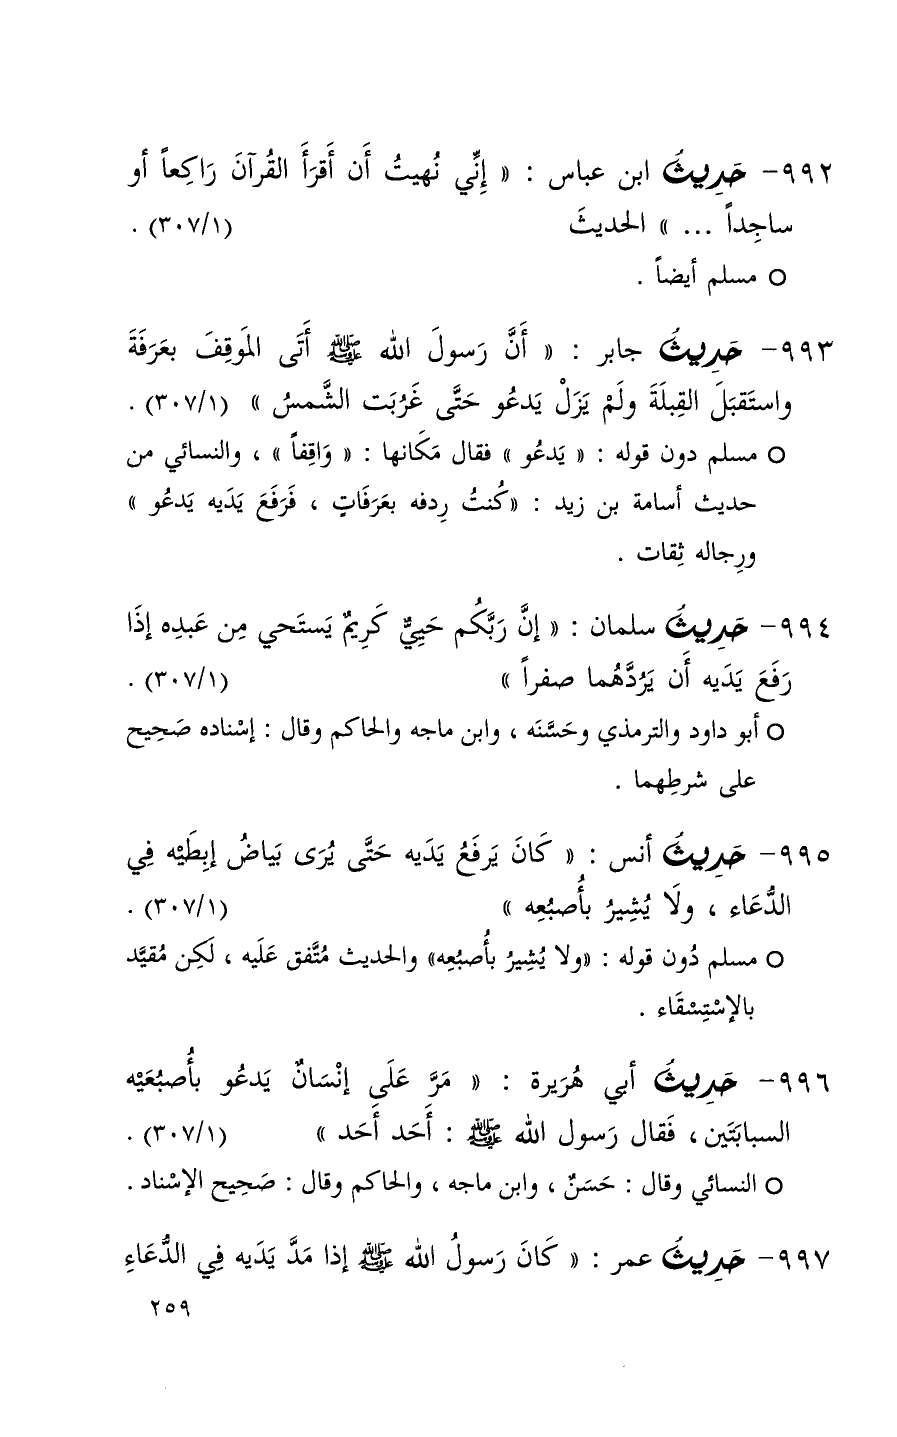 ٩٩٢- حَدِيثُ ابن عباس : « إِنِّي نُهيتُ أَن أَقرَأَ القُرآنَ رَاكِعاً أو
ساجِداً ... » الحديثَ (٣٠٧/١) .
○ مسلم أيضاً .
٩٩٣- حَدِيثُ جابر : « أَنَّ رَسولَ الله ﷺ أَتَى المَوقِفَ بعَرَفَةَ
واستَقبَلَ القِبلَةَ ولَمْ يَزَلْ يَدعُو حَتَّى غَرُبَت الشَّمسُ » (٣٠٧/١) .
○ مسلم دون قوله : « يَدعُو » فقال مَكَانها : « وَاقِفاً » ، والنسائي من
حديث أسامة بن زيد : «كُنتُ رِدفه بعَرَفَاتٍ ، فَرَفَعَ يَدَيه يَدعُو »
ورِجاله ثِقات .
٩٩٤- حَدِيثُ سلمان : « إنَّ رَبَّكُم حَيِيٌّ كَرِيمٌ يَستَحي مِن عَبدِه إذَا
رَفَعَ يَدَيه أَن يَرُدَّهُما صفراً » (٣٠٧/١) .
○ أبو داود والترمذي وحَسَّنَه ، وابن ماجه والحاكم وقال : إسْناده صَحِيح
على شرطِهما .
٩٩٥- حَدِيثُ أنس : « كَانَ يَرفَعُ يَدَيه حَتَّى يُرَى بَياضُ إبِطَيْه فِي
الدُّعَاء ، ولَا يُشِيرُ بأُصبُعِه » (٣٠٧/١) .
○ مسلم دُون قوله : «ولا يُشِيرُ بأُصبُعِه» والحديث مُتَّفق عَلَيه ، لَكِن مُقيَّد
بالإسْتِسْقَاء .
٩٩٦- حَدِيثُ أبي هُرَيرة : « مَرَّ عَلَى إنْسَانٌ يَدعُو بأُصبُعَيْه
السبابَتَين ، فَقال رَسول الله ﷺ : أَحَد أَحَد » (٣٠٧/١) .
○ النسائي وقال : حَسَنٌ ، وابن ماجه ، والحاكم وقال : صَحِيح الإسْناد .
٩٩٧- حَدِيثُ عمر : « كَانَ رَسولُ الله ﷺ إذا مَدَّ يَدَيه فِي الدُّعَاءِ
٢٥٩